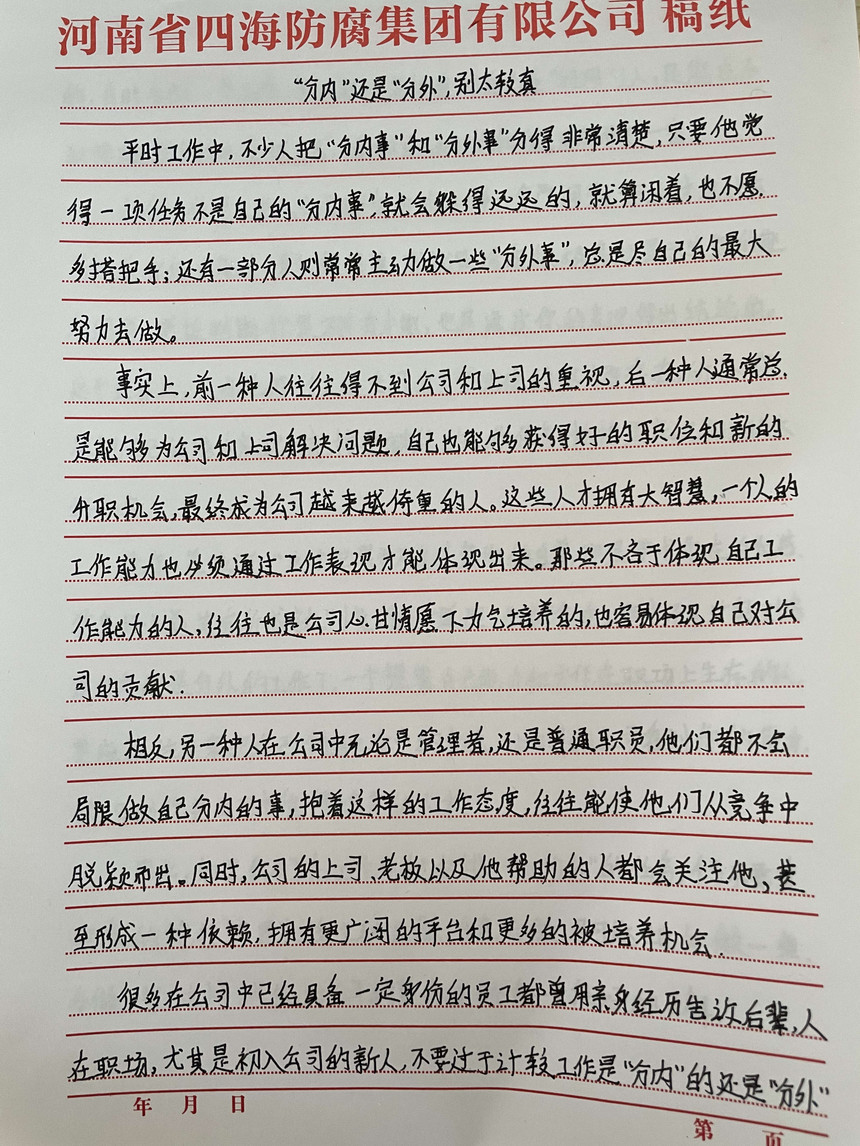 河南省四海防腐集团有限公司 稿纸
“分内”还是“分外”,别太较真
平时工作中,不少人把“分内事”和“分外事”分得非常清楚,只要他觉
得一项任务不是自己的“分内事”,就会躲得远远的,就算闲着,也不愿
多搭把手;还有一部分人则常常主动做一些“分外事”,总是尽自己的最大
努力去做。
事实上,前一种人往往得不到公司和上司的重视,后一种人通常总
是能够为公司和上司解决问题,自己也能够获得好的职位和新的
升职机会,最终成为公司越来越倚重的人。这些人才拥有大智慧,一个人的
工作能力也必须通过工作表现才能体现出来。那些不吝于体现自己工
作能力的人,往往也是公司心甘情愿下力气培养的,也容易体现自己对公
司的贡献.
相反,另一种人在公司中无论是管理者,还是普通职员,他们都不会
局限做自己分内的事,抱着这样的工作态度,往往能使他们从竞争中
脱颖而出。同时,公司的上司、老板以及他帮助的人都会关注他,甚
至形成一种依赖,拥有更广阔的平台和更多的被培养机会.
很多在公司中已经具备一定身份的员工都曾用亲身经历告诉后辈,人
在职场,尤其是初入公司的新人,不要过于计较工作是“分内”的还是“分外”
年 月 日
第 页